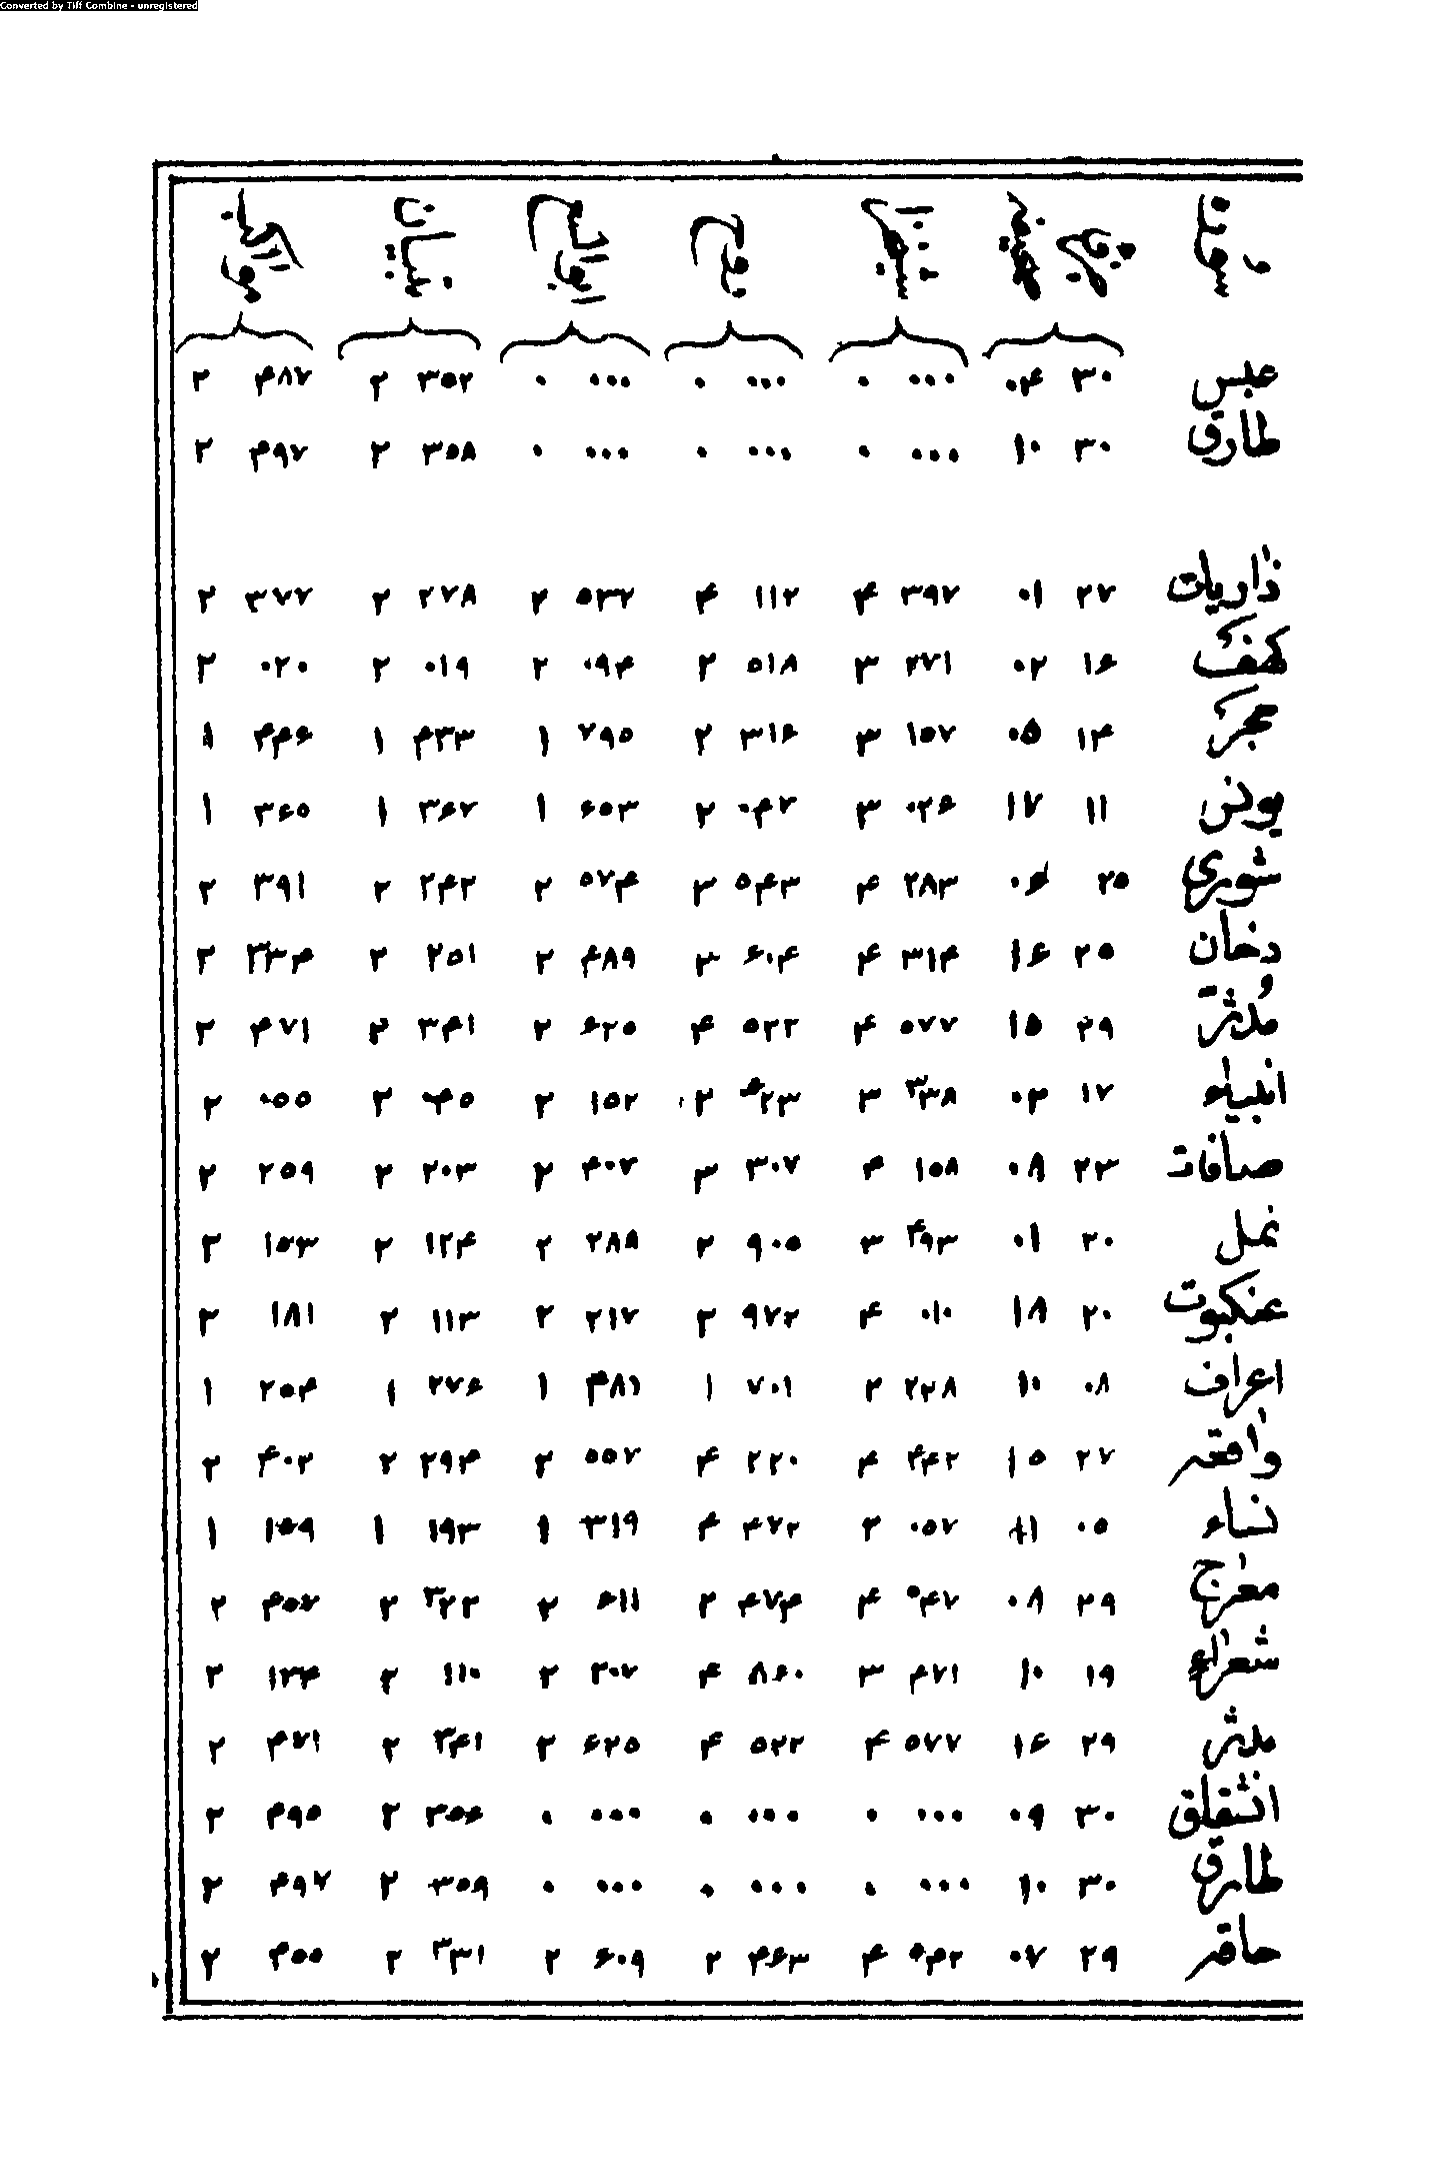 Converted by Tiff Combine - unregistered
عبس ۳۰ ۰۴ ۰۰۰ ۰ ۰۰۰ ۰ ۰۰۰ ۰ ۳۵۲ ۲ ۴۸۷ ۲
طارق ۳۰ ۱۰ ۰۰۰ ۰ ۰۰۰ ۰ ۰۰۰ ۰ ۳۵۸ ۲ ۴۹۷ ۲
ذاریات ۲۷ ۰۱ ۳۹۷ ۴ ۱۱۲ ۴ ۵۳۲ ۲ ۲۷۸ ۲ ۳۷۷ ۲
کهف ۱۶ ۰۲ ۲۷۱ ۳ ۵۱۸ ۲ ۰۹۴ ۲ ۰۱۹ ۲ ۰۲۰ ۲
حجر ۱۴ ۰۵ ۱۵۷ ۳ ۳۱۶ ۲ ۷۹۵ ۱ ۴۳۳ ۱ ۴۴۶ ۱
یونس ۱۱ ۱۷ ۰۲۶ ۳ ۰۴۷ ۲ ۶۵۳ ۱ ۳۶۷ ۱ ۳۶۵ ۱
شوری ۲۵ ۰۶ ۲۸۳ ۴ ۵۴۳ ۳ ۵۷۴ ۲ ۲۴۲ ۲ ۳۹۱ ۲
دخان ۲۵ ۱۶ ۳۱۴ ۴ ۶۰۴ ۳ ۴۸۹ ۲ ۲۵۱ ۲ ۳۳۴ ۲
مُدثر ۲۹ ۱۵ ۵۷۷ ۴ ۵۲۲ ۴ ۶۲۵ ۲ ۳۴۱ ۲ ۴۷۱ ۲
انبیاء ۱۷ ۰۳ ۳۳۸ ۳ ۶۲۳ ۲ ۱۵۲ ۲ ۰۴۵ ۲ ۰۵۵ ۲
صافات ۲۳ ۰۸ ۱۵۸ ۴ ۳۰۷ ۳ ۴۰۷ ۲ ۲۰۳ ۲ ۲۵۹ ۲
نمل ۲۰ ۰۱ ۴۹۳ ۳ ۹۰۵ ۲ ۲۸۸ ۲ ۱۲۴ ۲ ۱۵۳ ۲
عنکبوت ۲۰ ۱۸ ۰۱۰ ۴ ۹۷۲ ۲ ۲۱۷ ۲ ۱۱۳ ۲ ۱۸۱ ۲
اعراف ۰۸ ۱۰ ۲۲۸ ۲ ۷۰۱ ۱ ۴۸۱ ۱ ۲۷۶ ۱ ۲۵۴ ۱
واقعہ ۲۷ ۱۵ ۴۴۲ ۴ ۲۲۰ ۴ ۵۵۷ ۲ ۲۹۴ ۲ ۴۰۲ ۲
نساء ۰۵ ۱۱ ۰۵۷ ۲ ۴۷۲ ۴ ۳۱۹ ۱ ۱۹۳ ۱ ۱۵۹ ۱
معراج ۲۹ ۰۸ ۵۴۷ ۴ ۴۷۴ ۲ ۶۱۱ ۲ ۳۲۲ ۲ ۴۵۷ ۲
شعراء ۱۹ ۱۰ ۴۷۱ ۳ ۸۶۰ ۴ ۲۰۷ ۲ ۱۱۰ ۲ ۱۳۴ ۲
مدثر ۲۹ ۱۶ ۵۷۷ ۴ ۵۲۲ ۴ ۶۲۵ ۲ ۳۴۱ ۲ ۴۷۱ ۲
انشقاق ۳۰ ۰۹ ۰۰۰ ۰ ۰۰۰ ۰ ۰۰۰ ۰ ۳۵۶ ۲ ۴۹۵ ۲
طارق ۳۰ ۱۰ ۰۰۰ ۰ ۰۰۰ ۰ ۰۰۰ ۰ ۳۵۹ ۲ ۴۹۷ ۲
حاقہ ۲۹ ۰۷ ۵۴۲ ۴ ۴۶۳ ۲ ۶۰۹ ۲ ۳۳۱ ۲ ۴۵۵ ۲